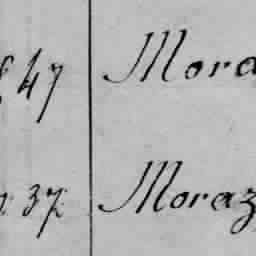 47 Mora
37 Moraz